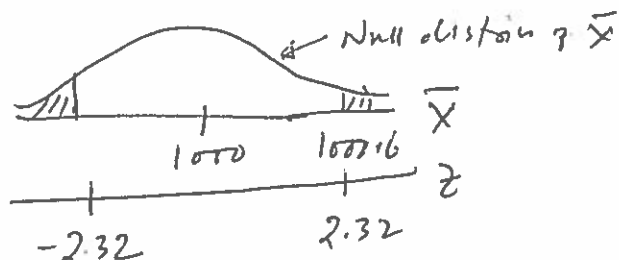 Null distbn of X̅
X̅
1000 1000.6
Z
-2.32 2.32